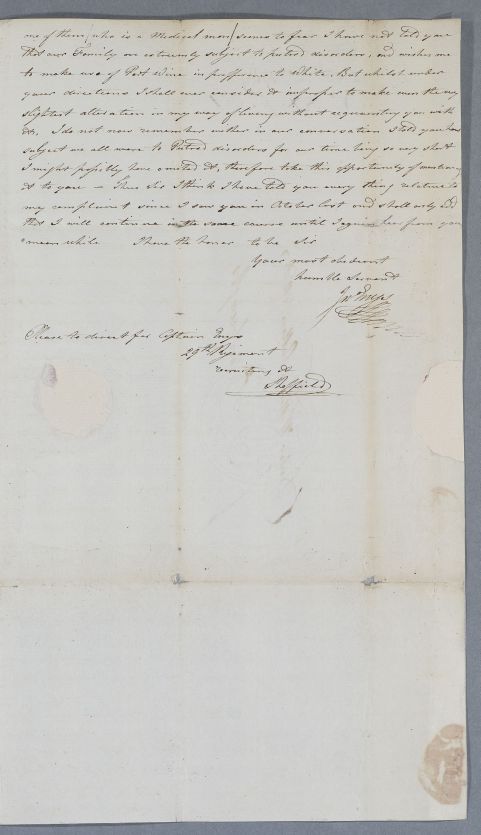 me of them, who is a Medical man) seems to fear I have not told you
that our Family are extremely subject to putrid disorders, and wishes me
to make use of Port Wine in preference to White. But whilst under
your directions I shall ever consider it improper to make even the very
slightest alteration in my way of living without acquainting you with
it. I do not now remember whether in our conversation I told you how
subject we all were to Putrid disorders for our time being so very short
I might possibly have omitted it, therefore take this opportunity of mentioning
it to you — Thus Sir I think I have told you every thing relative to
my complaint since I saw you in October last and shall only add
that I will continue in the same course until I again hear from you
mean while I have the honor to be Sir
Your most obedient
humble Servant
Jn Enys
Please to direct for Captain Enys
29th Regiment
recruiting at
Sheffield